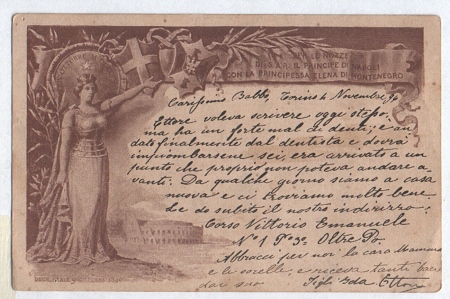 PER LE NOZZE
DI S.A.R. IL PRINCIPE DI NAPOLI
CON LA PRINCIPESSA ELENA DI MONTENEGRO
Carissimo Babbo, Torino 4 Novembre 96
Ettore voleva scrivere oggi stesso,
ma ha un forte mal di denti; è an
dato finalmente dal dentista e dovrà
impiombarsene sei, era arrivato a un
punto che proprio non poteva andare a
vanti. Da qualche giorno siamo a casa
nuova e ci troviamo molto bene.
Le do subito il nostro indirizzo:
Corso Vittorio Emanuele
N° 1 P° 3°. Oltre Po.
Abbracci per noi la cara Mamma
e le sorelle, e riceva tanti baci
dai suoi Figli Ida Ettore